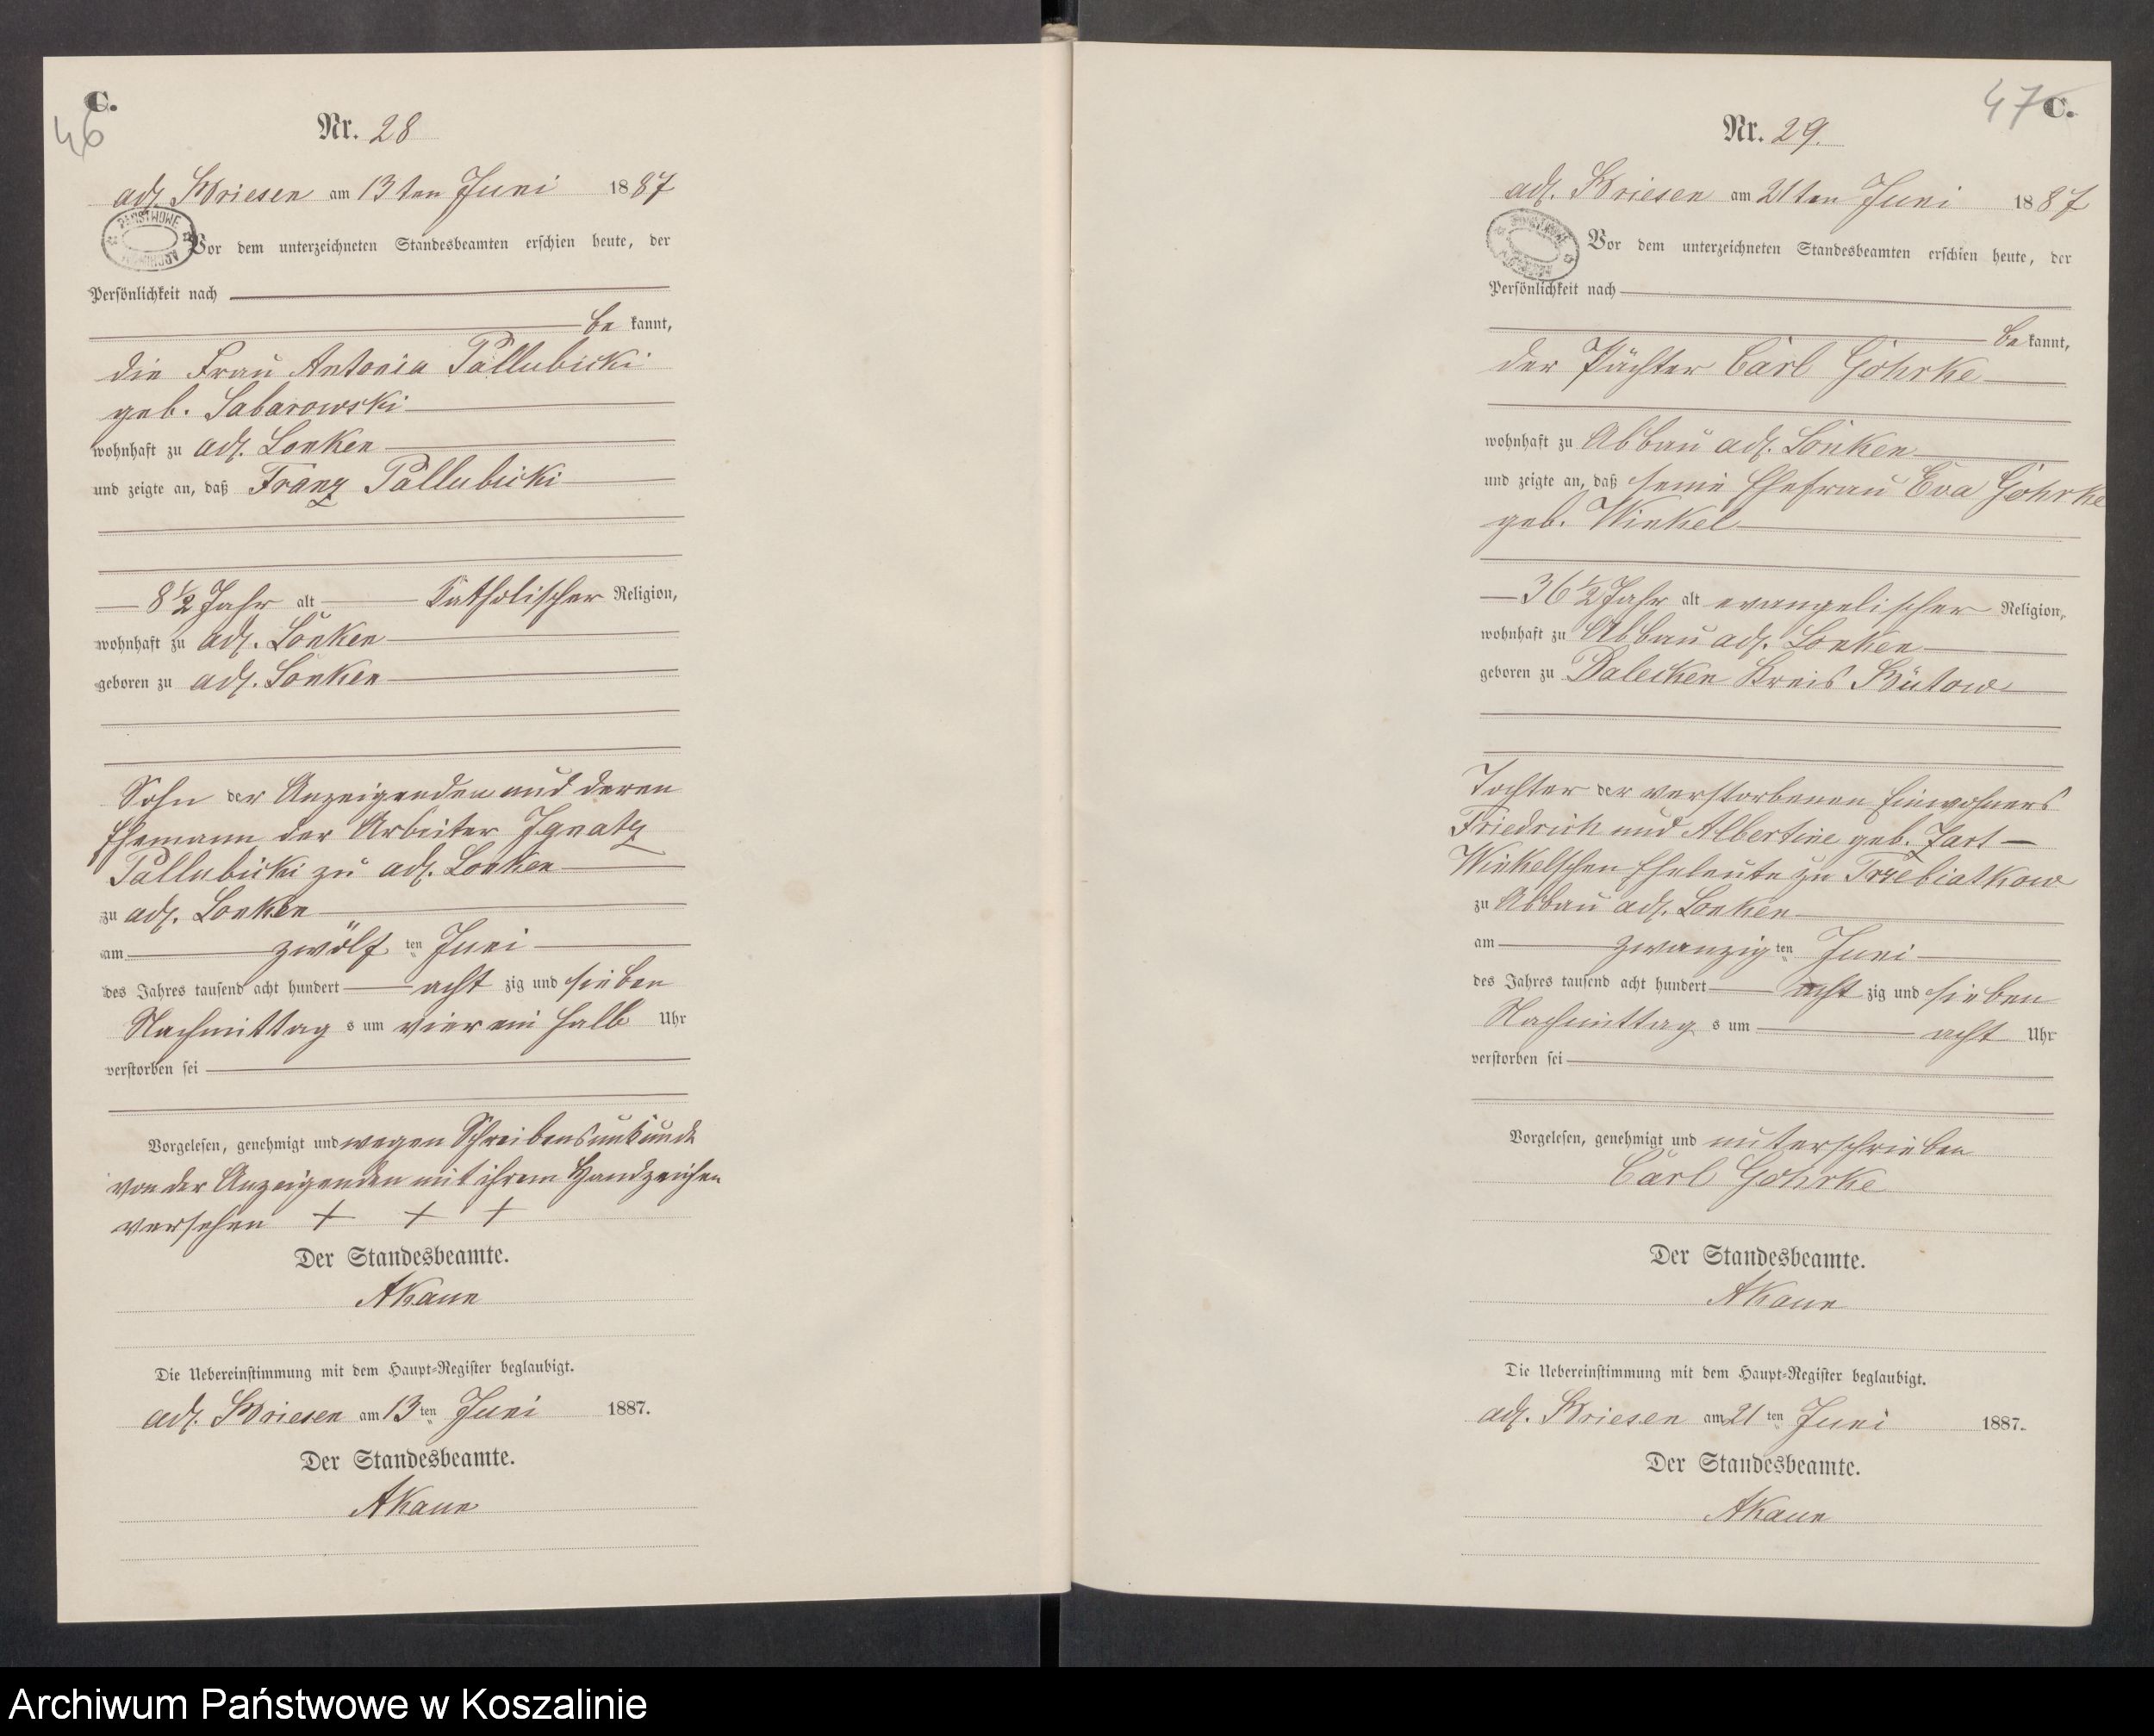 C.
46
Nr. 28
adl. Briesen am 13ten Juni 1887
PAŃSTWOWE ARCHIWUM
Vor dem unterzeichneten Standesbeamten erschien heute, der
Persönlichkeit nach
be kannt,
die Frau Antonia Pallubicki
geb. Labarowski
wohnhaft zu adl. Lonken
und zeigte an, daß Franz Pallubicki
8 1/2 Jahr alt Katholischer Religion,
wohnhaft zu adl. Lonken
geboren zu adl. Lonken
Sohn der Anzeigenden und deren
Ehemann der Arbeiter Ignatz
Pallubicki zu adl. Lonken
zu adl. Lonken
am zwölf ten Juni
des Jahres tausend acht hundert acht zig und sieben
Nachmittag s um vier ein halb Uhr
verstorben sei
Vorgelesen, genehmigt und wegen Schreibensunkunde
von der Anzeigenden mit ihrem Handzeichen
versehen + + +
Der Standesbeamte.
AKaun
Die Uebereinstimmung mit dem Haupt-Register beglaubigt.
adl. Briesen am 13 ten Juni 1887.
Der Standesbeamte.
AKaun
47 C.
Nr. 29.
adl. Briesen am 21ten Juni 1887
Vor dem unterzeichneten Standesbeamten erschien heute, der
Persönlichkeit nach
be kannt,
der Pächter Carl Gohrke
wohnhaft zu Abbau adl. Lonken
und zeigte an, daß seine Ehefrau Eva Gohrke
geb. Winkel
36 1/2 Jahr alt evangelischer Religion,
wohnhaft zu Abbau adl. Lonken
geboren zu Kreis Bütow
Tochter der verstorbenen Einwohners
Friedrich und Albertine geb. Jart
Winkelschen Eheleute zu Trzebiatkow
zu Abbau adl. Lonken
am zwanzig ten Juni
des Jahres tausend acht hundert acht zig und sieben
Nachmittag s um acht Uhr
verstorben sei
Vorgelesen, genehmigt und unterschrieben
Carl Gohrke
Der Standesbeamte.
AKaun
Die Uebereinstimmung mit dem Haupt-Register beglaubigt.
adl. Briesen am 21 ten Juni 1887.
Der Standesbeamte.
AKaun
Archiwum Państwowe w Koszalinie